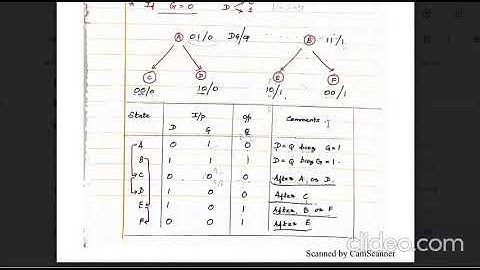 * If G=0 D
A 01/0 DG/Q B 11/1
C D E F
00/0 10/0 10/1 00/1
State I/p o/p Comments
D G Q
A 0 1 0 D=Q bcoz G=1
B 1 1 1 D=Q bcoz G=1.
C 0 0 0 After A or D.
D 1 0 0 After C
E 1 0 1 After B or F
F 0 0 1 After E
clideo.com
Scanned by CamScanner